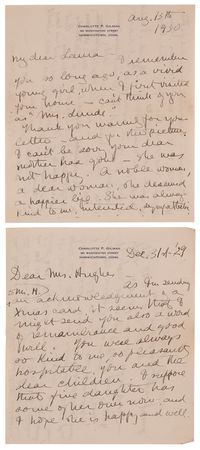 CHARLOTTE P. GILMAN
NORWICHTOWN, CONN.
Aug. 13th
1930
My dear Laura - I remember
you so long ago, as a
young girl, when I first visited
your home - can't think of you
as "Mrs.
Thank you warmly for your
letter - and for the picture.
I can't be sorry your dear
mother has gone - she was
not happy. A noble woman,
a dear woman, she deserved
a happier life. She was always
kind to me, interested, sympathetic
CHARLOTTE P. GILMAN
NORWICHTOWN, CONN.
Dec. 31st '29
Dear Mrs. Hughes -
As I'm sending
an acknowledgment of a
Xmas card, it seems that I
might send you also a word
of remembrance and good
will. You were always
so kind to me, so pleasantly
hospitable, you and the
dear children. I suppose
that fine daughter has
some of her own now, and
I hope she is happy and well.